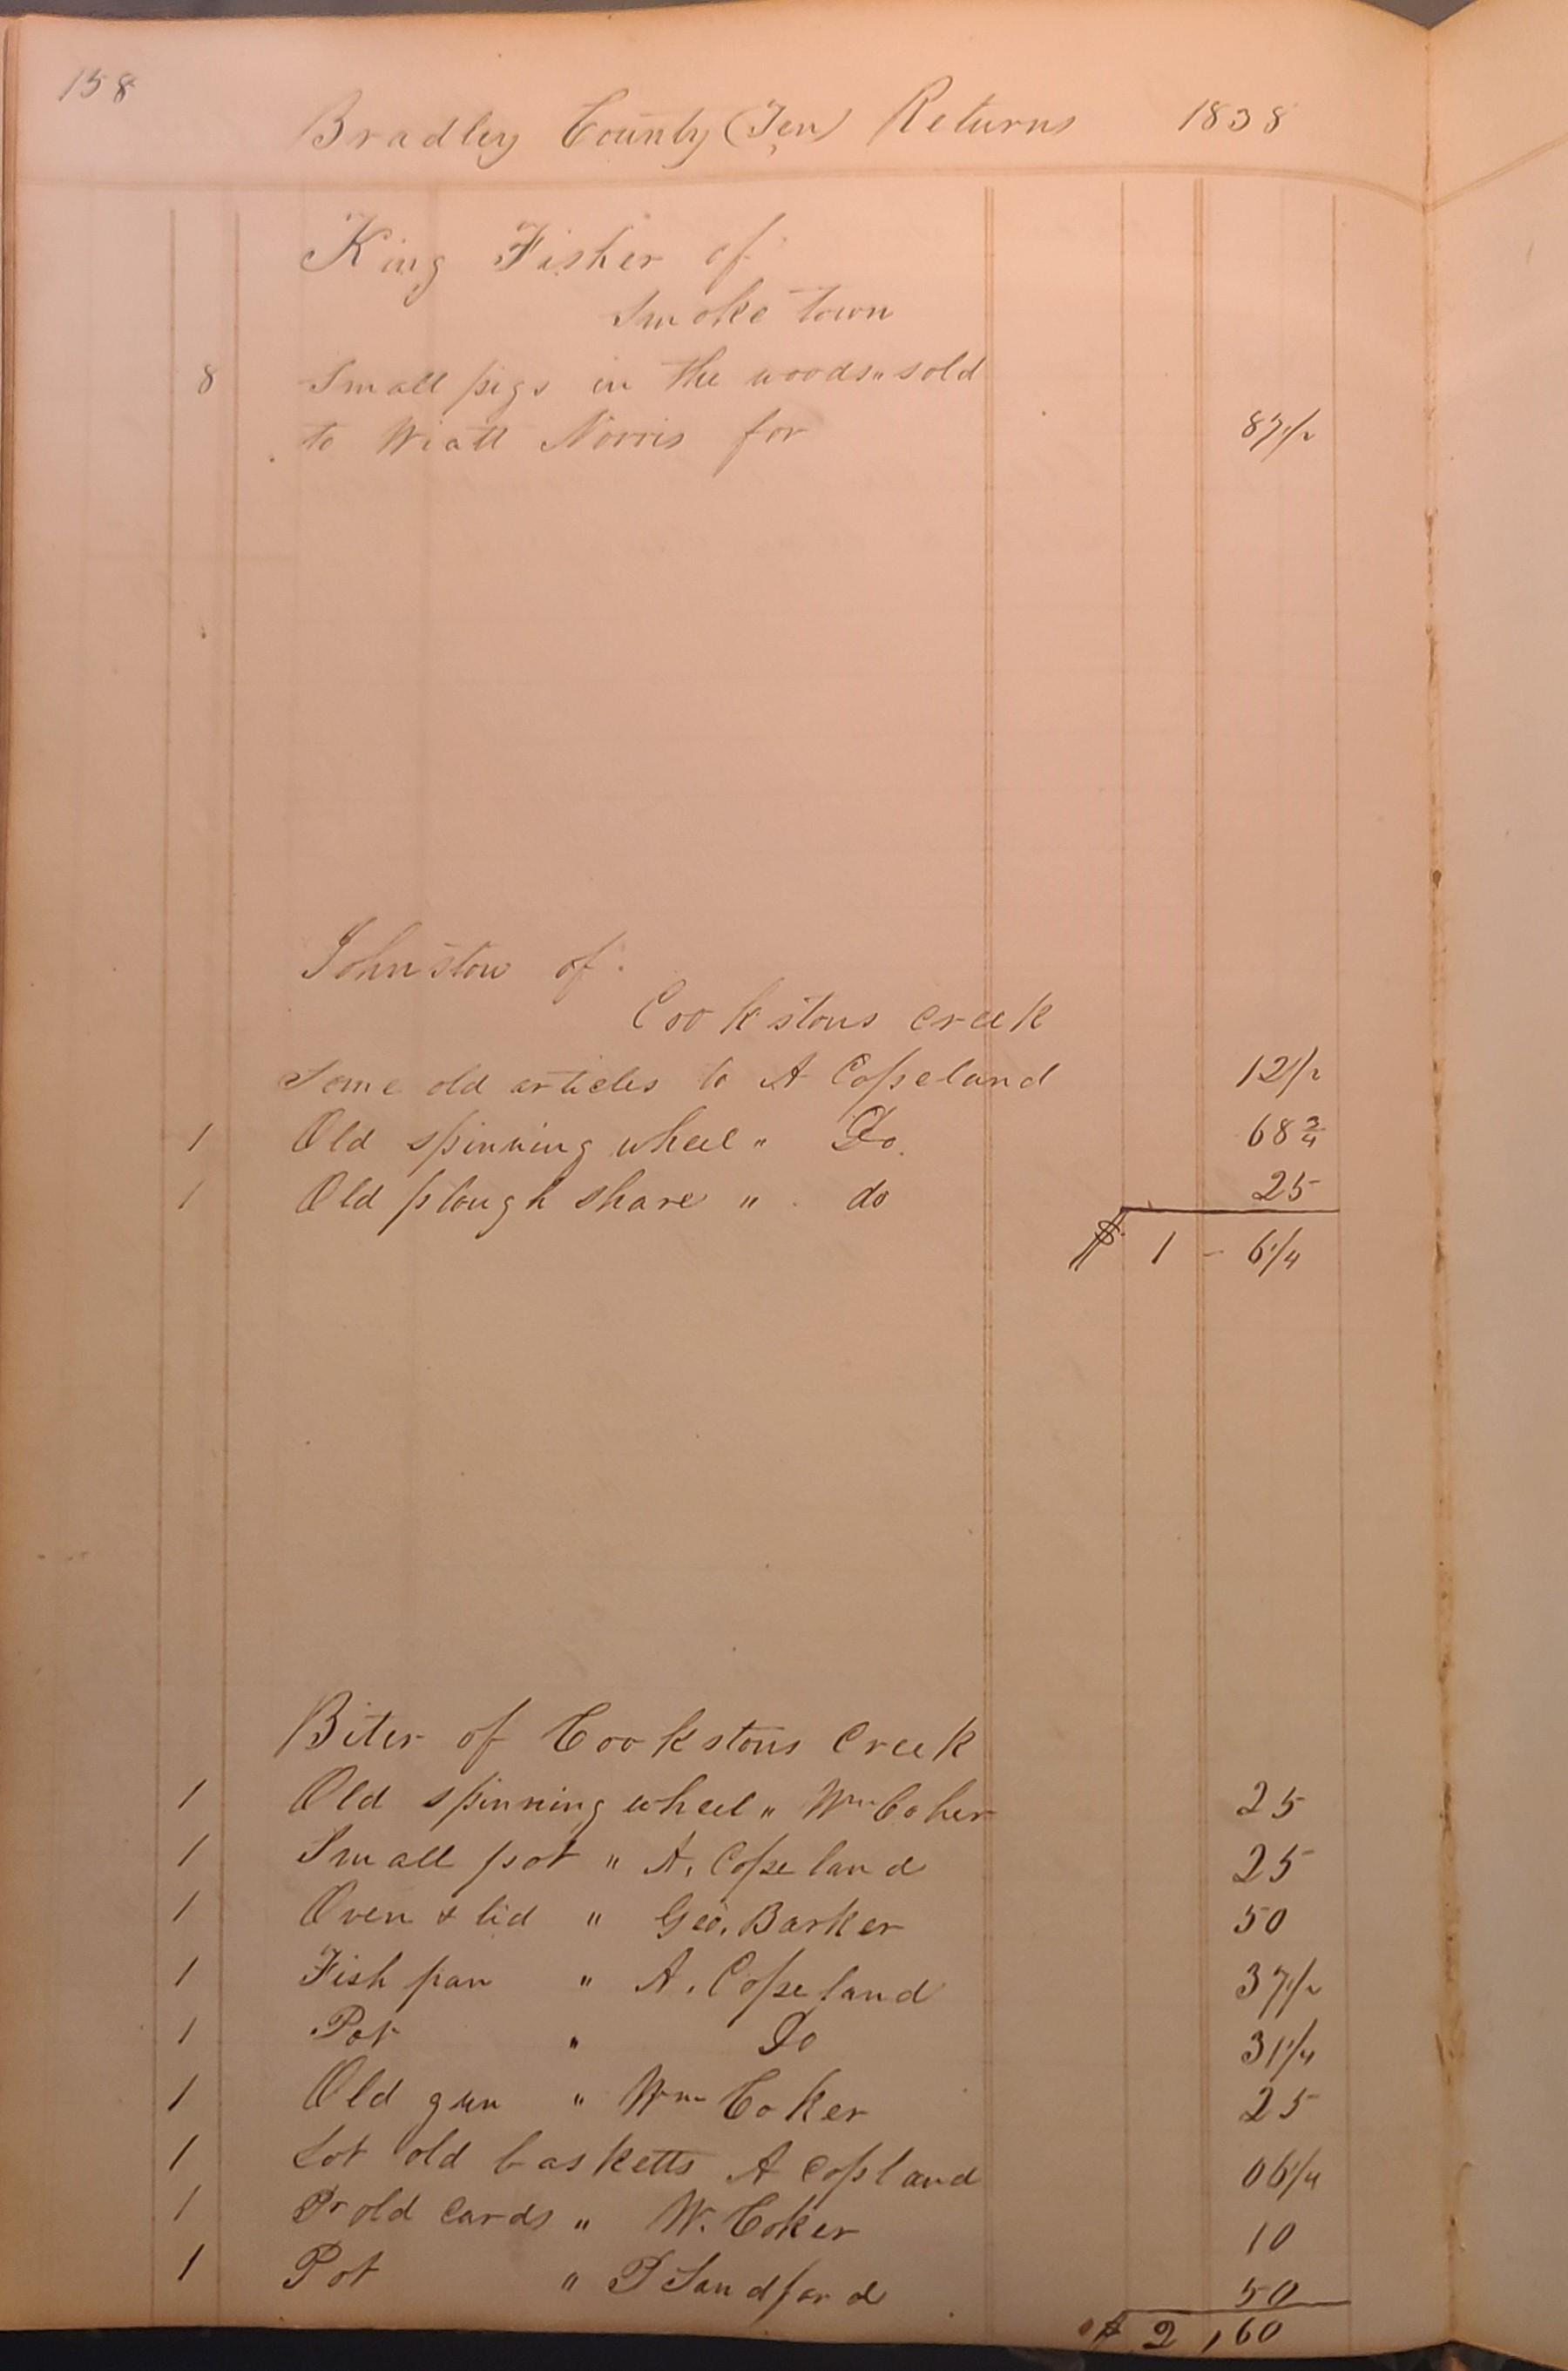 158
Bradley County (Ten) Returns 1838
King Fisher of
Smoke town
8 Small pigs in the woods " sold
to Wiatt Norris for 87 1/2
Johnston of
Cookstons creek
Some old articles to A Copeland 12 1/2
1 Old spinning wheel " Do. 68 3/4
1 Old plough share " do 25
$ 1 - 6 1/4
Biter of Cookstons Creek
1 Old spinning wheel " Wm Coker 25
1 Small pot " A. Copeland 25
1 Oven & lid " Geo. Barker 50
1 Fish pan " A. Copeland 37 1/2
1 Pot " Do 31 1/4
1 Old gun " Wm Coker 25
1 Lot old basketts A Copland 06 1/4
1 Pr old Cards " W. Coker 10
1 Pot " P Sandford 50
$ 2,60